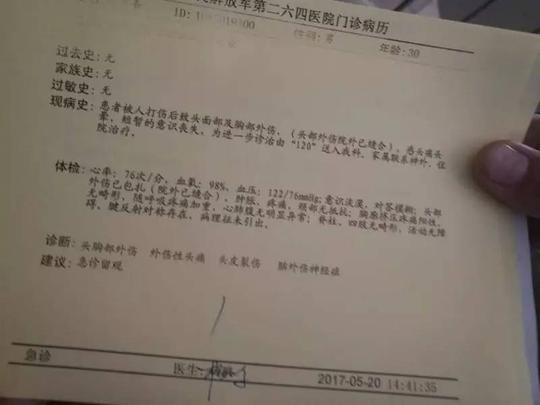 解放军第二六四医院门诊病历
ID: 性别: 男 年龄: 30
过去史: 无
家族史: 无
过敏史: 无
现病史: 患者被人打伤后致头面部及胸部外伤,(头部外伤院外已缝合),悉头痛头
晕,短暂的意识丧失,为进一步诊治由“120”送入我科,家属联系神外,住
院治疗。
体检: 心率: 76次/分,血氧: 98%,血压: 122/76mmHg;意识淡漠,对答模糊;头部
外伤已包扎(院外已缝合),肿胀,疼痛,颈部无抵抗;胸廓挤压疼痛阳性,
无畸形,随呼吸疼痛加重,心肺腹无明显异常;脊柱,四肢无畸形,活动无障
碍,腱反射对称存在,病理征未引出。
诊断: 头胸部外伤 外伤性头痛 头皮裂伤 脑外伤神经症
建议: 急诊留观
急诊
医生:
2017-05-20 14:41:35